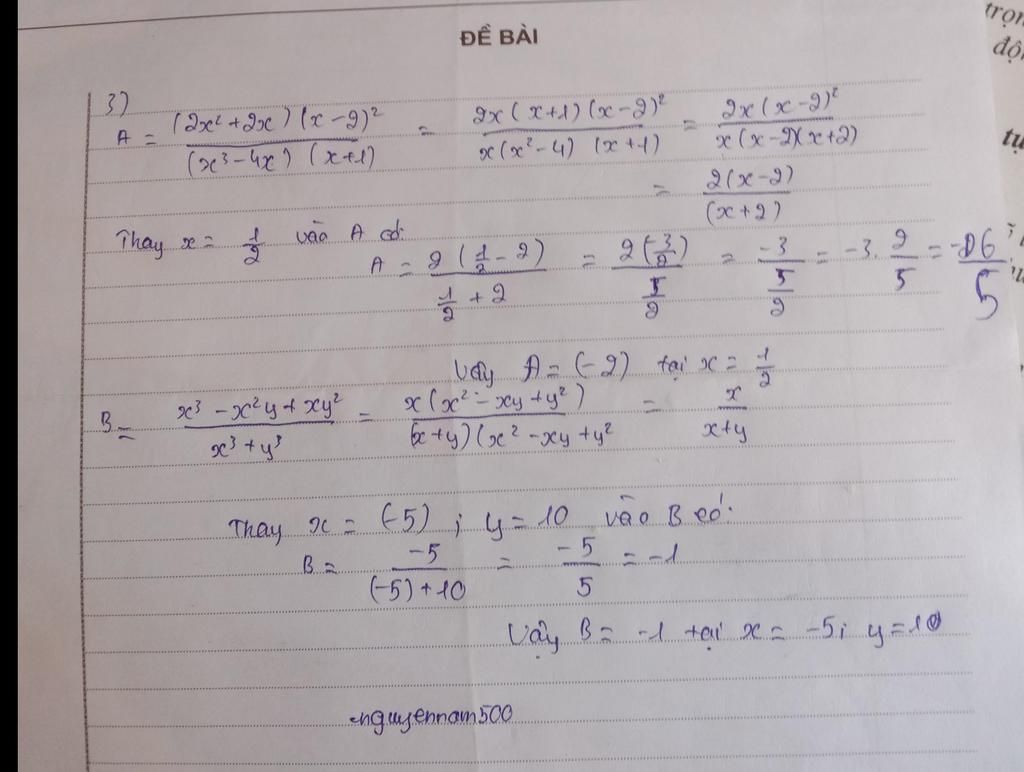 ĐỀ BÀI
trọn
độ
tụ
3)
A = (2x² + 2x)(x - 2)² / (x³ - 4x)(x + 1) = 2x(x + 1)(x - 2)² / x(x² - 4)(x + 1) = 2x(x - 2)² / x(x - 2)(x + 2)
= 2(x - 2) / (x + 2)
Thay x = 1/2 vào A có:
A = 2(1/2 - 2) / (1/2 + 2) = 2(-3/2) / (5/2) = -3 / (5/2) = -3 . 2/5 = -6/5
Vậy A = (-2) tại x = 1/2
B = x³ - x²y + xy² / x³ + y³ = x(x² - xy + y²) / (x + y)(x² - xy + y² = x / x + y
Thay x = (-5) ; y = 10 vào B có:
B = -5 / (-5) + 10 = -5 / 5 = -1
Vậy B = -1 tại x = -5; y = 10
nguyennam500